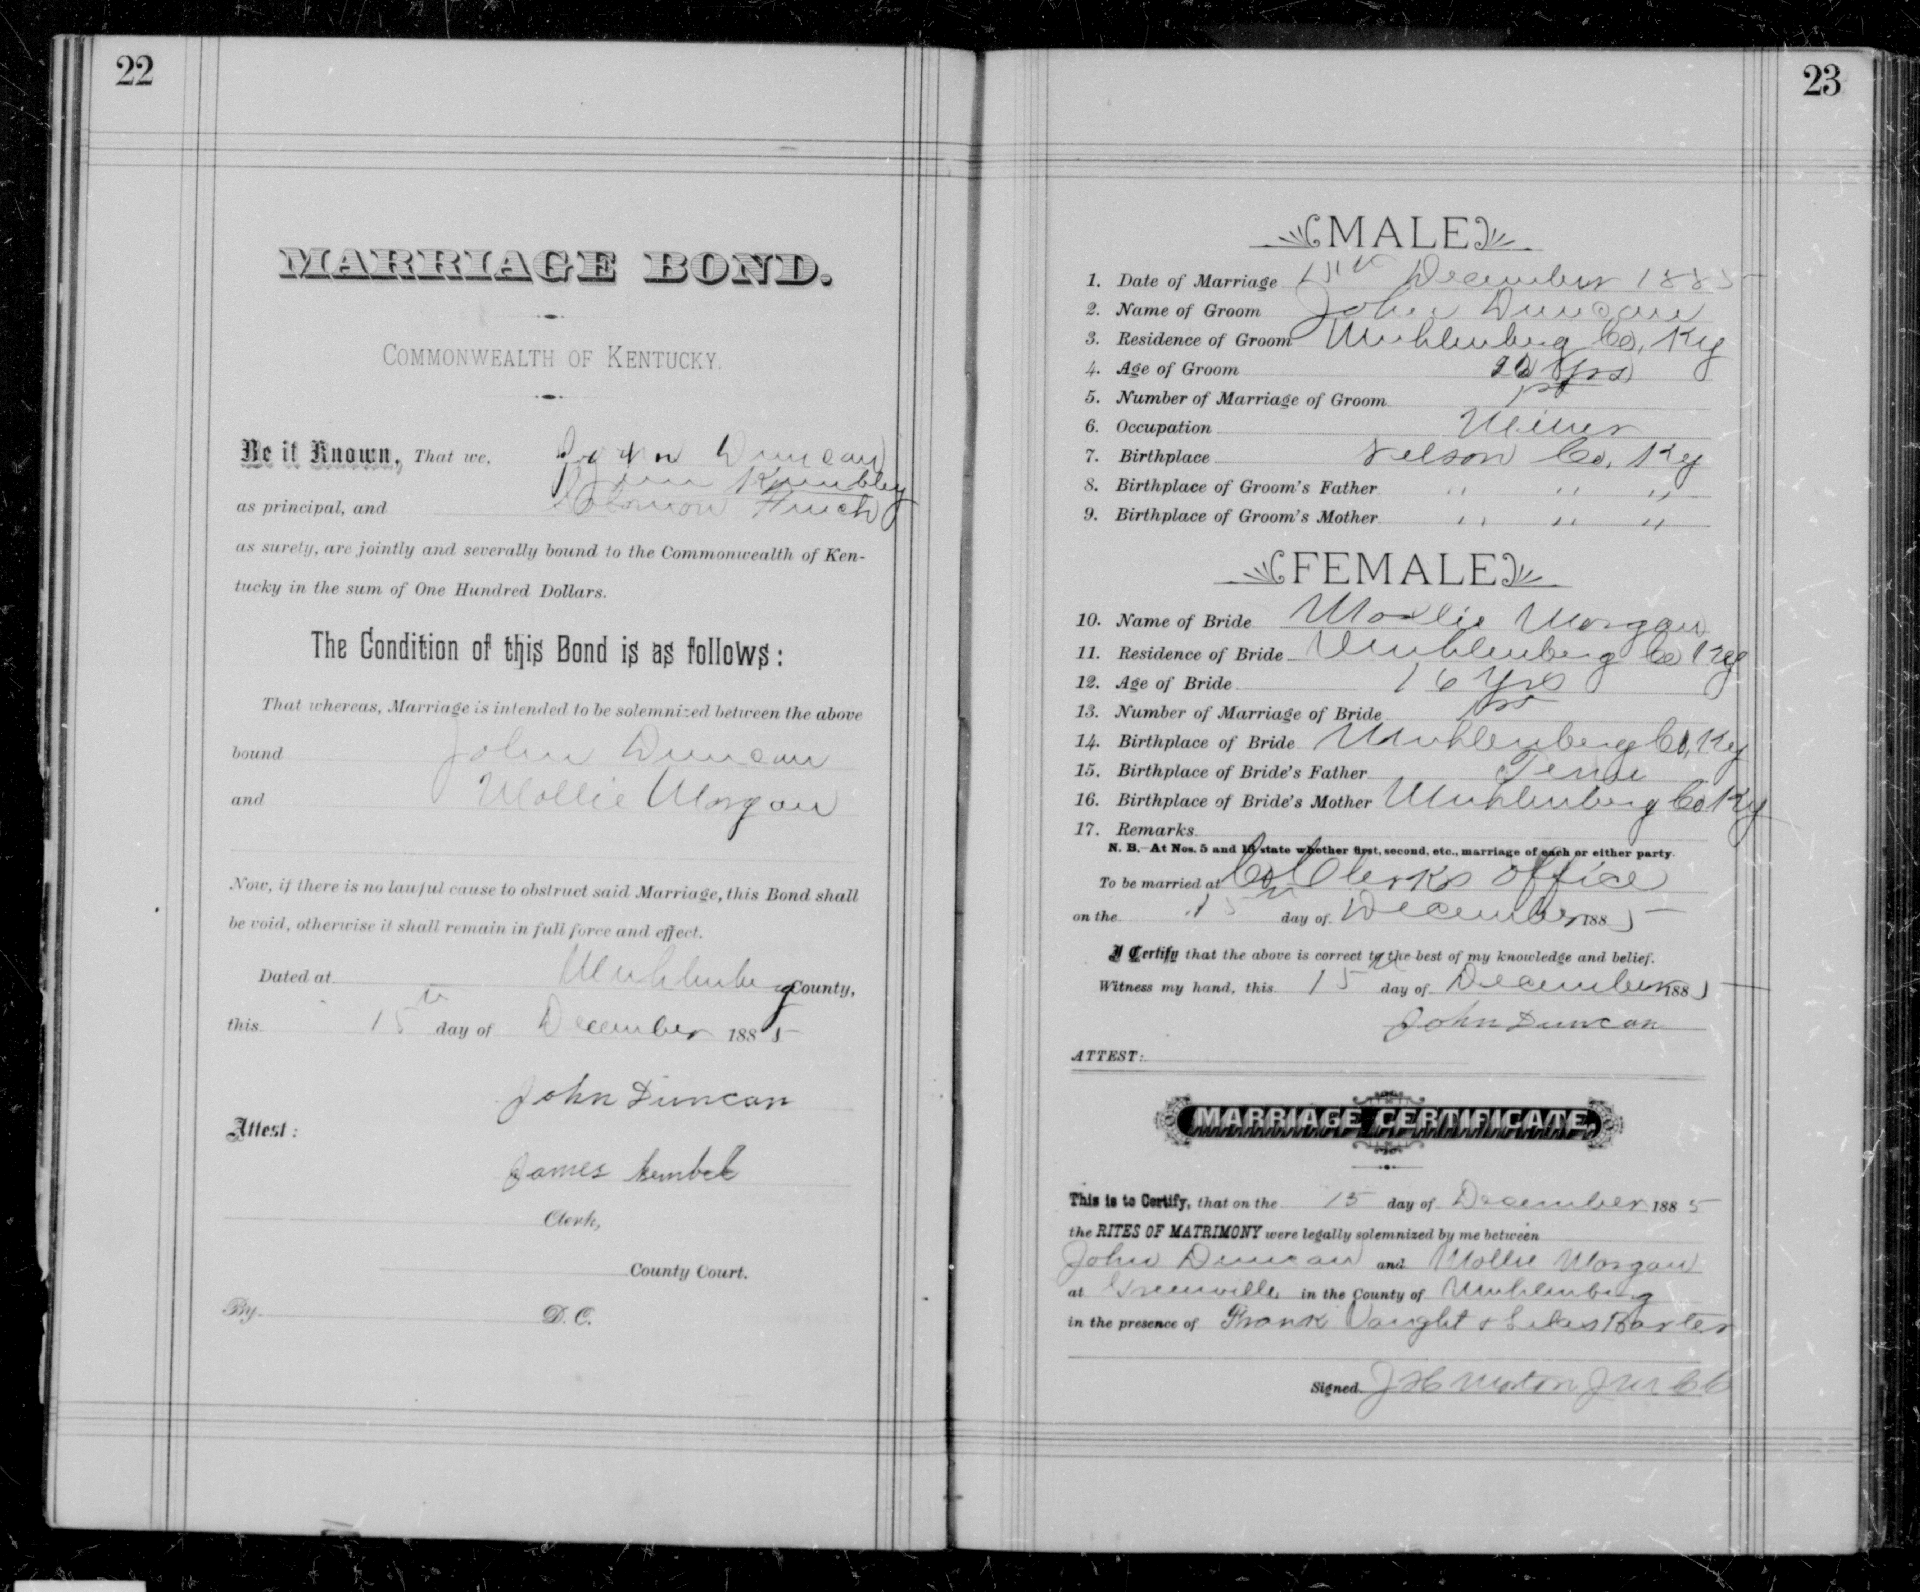 22
MARRIAGE BOND.
COMMONWEALTH OF KENTUCKY.
Be it Known, That we, John Duncan
Kimbley
as principal, and Solomon Finch
as surety, are jointly and severally bound to the Commonwealth of Ken-
tucky in the sum of One Hundred Dollars.
The Condition of this Bond is as follows:
That whereas, Marriage is intended to be solemnized between the above
bound John Duncan
and Mollie Morgan
Now, if there is no lawful cause to obstruct said Marriage, this Bond shall
be void, otherwise it shall remain in full force and effect.
Dated at Muhlenberg County,
this 15th day of December 1885
John Duncan
Attest:
James
Clerk,
County Court.
By D. C.
23
MALE
1. Date of Marriage 15th December 1885
2. Name of Groom John Duncan
3. Residence of Groom Muhlenberg Co, Ky
4. Age of Groom Yrs
5. Number of Marriage of Groom 1st
6. Occupation Miner
7. Birthplace Nelson Co, Ky
8. Birthplace of Groom's Father " " "
9. Birthplace of Groom's Mother " " "
FEMALE
10. Name of Bride Mollie Morgan
11. Residence of Bride Muhlenberg Co Ky
12. Age of Bride 16 Yrs
13. Number of Marriage of Bride 1st
14. Birthplace of Bride Muhlenberg Co, Ky
15. Birthplace of Bride's Father Tenn
16. Birthplace of Bride's Mother Muhlenberg Co Ky
17. Remarks
N. B.—At Nos. 5 and 13 state whether first, second, etc., marriage of each or either party.
To be married at Co Clerks office
on the 15th day of December 1885
I Certify that the above is correct to the best of my knowledge and belief.
Witness my hand, this 15th day of December 1885
John Duncan
ATTEST:
MARRIAGE CERTIFICATE.
This is to Certify, that on the 15 day of December 1885
the RITES OF MATRIMONY were legally solemnized by me between
John Duncan and Mollie Morgan
at Greenville in the County of Muhlenberg
in the presence of Frank Vaught & Silas Baxter
Signed J H Morton